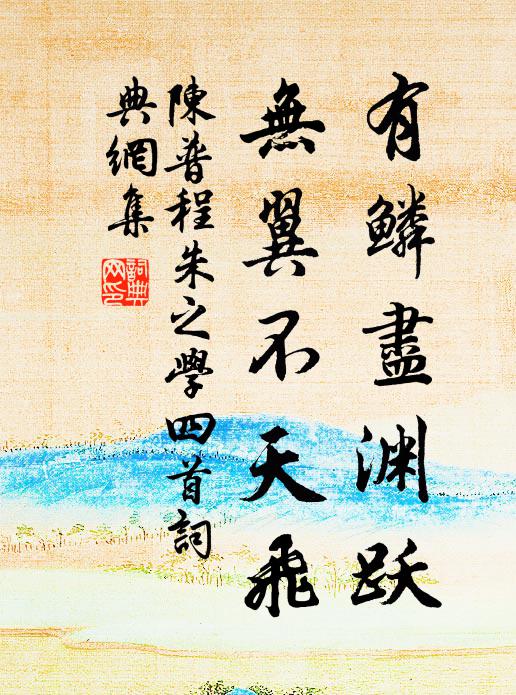 有鳞盡渊跃
無翼不天飛
陳普程朱之學四首詞
典網集
詞典网印